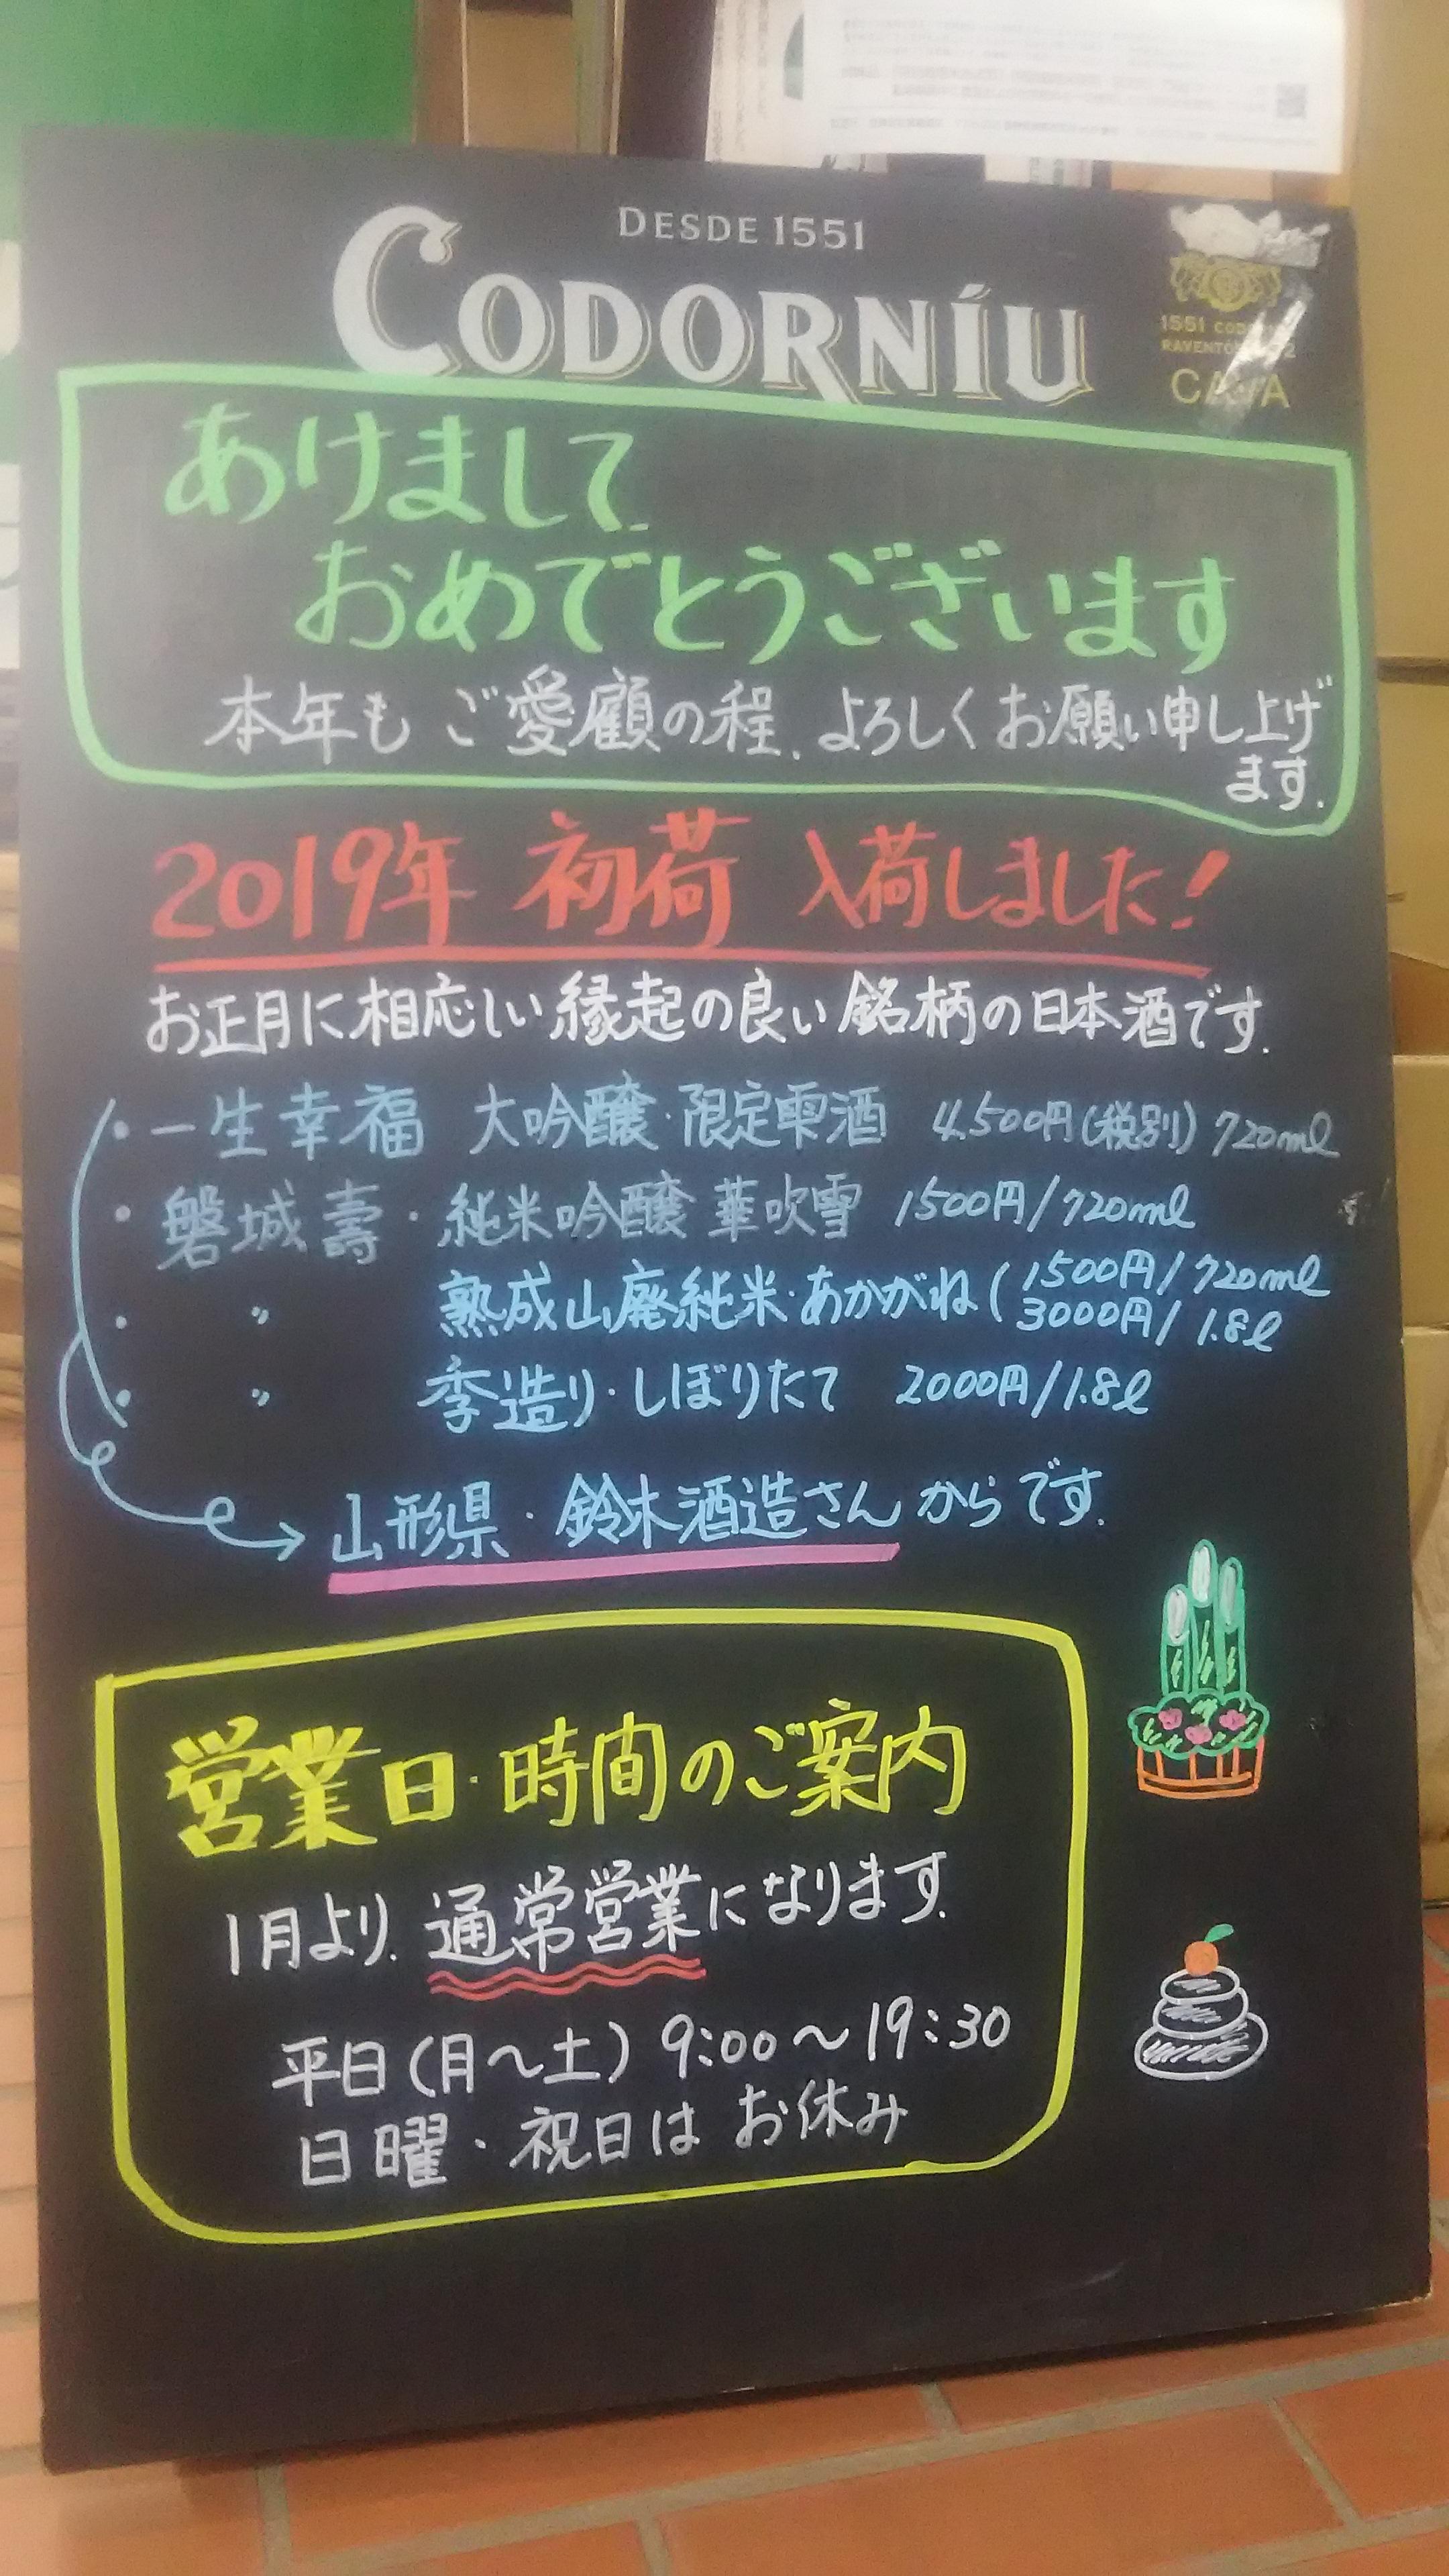 DESDE 1551
CODORNÍU
1551
CAVA
あけまして
おめでとうございます
本年も ご愛顧の程、よろしくお願い申し上げ
ます。
2019年 初荷 入荷しました!
お正月に相応しい縁起の良い銘柄の日本酒です。
・一生幸福 大吟醸・限定雫酒 4,500円(税別) 720ml
・磐城壽・純米吟醸 華吹雪 1500円/720ml
・ 〃 熟成山廃純米・あかがね ( 1500円/720ml
3000円/1.8l
・ 〃 季造り・しぼりたて 2000円/1.8l
山形県・鈴木酒造さんからです。
営業日・時間のご案内
1月より、通常営業になります。
平日(月〜土) 9:00〜19:30
日曜・祝日は お休み